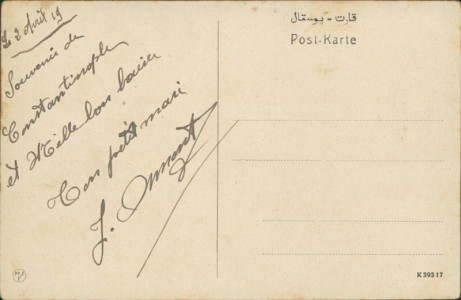 Le 2 avril 19
Souvenir de
Constantinople
et Mille bon baiser
Ton petit mari
J.
قارت - پوستال
Post-Karte
K 393 17